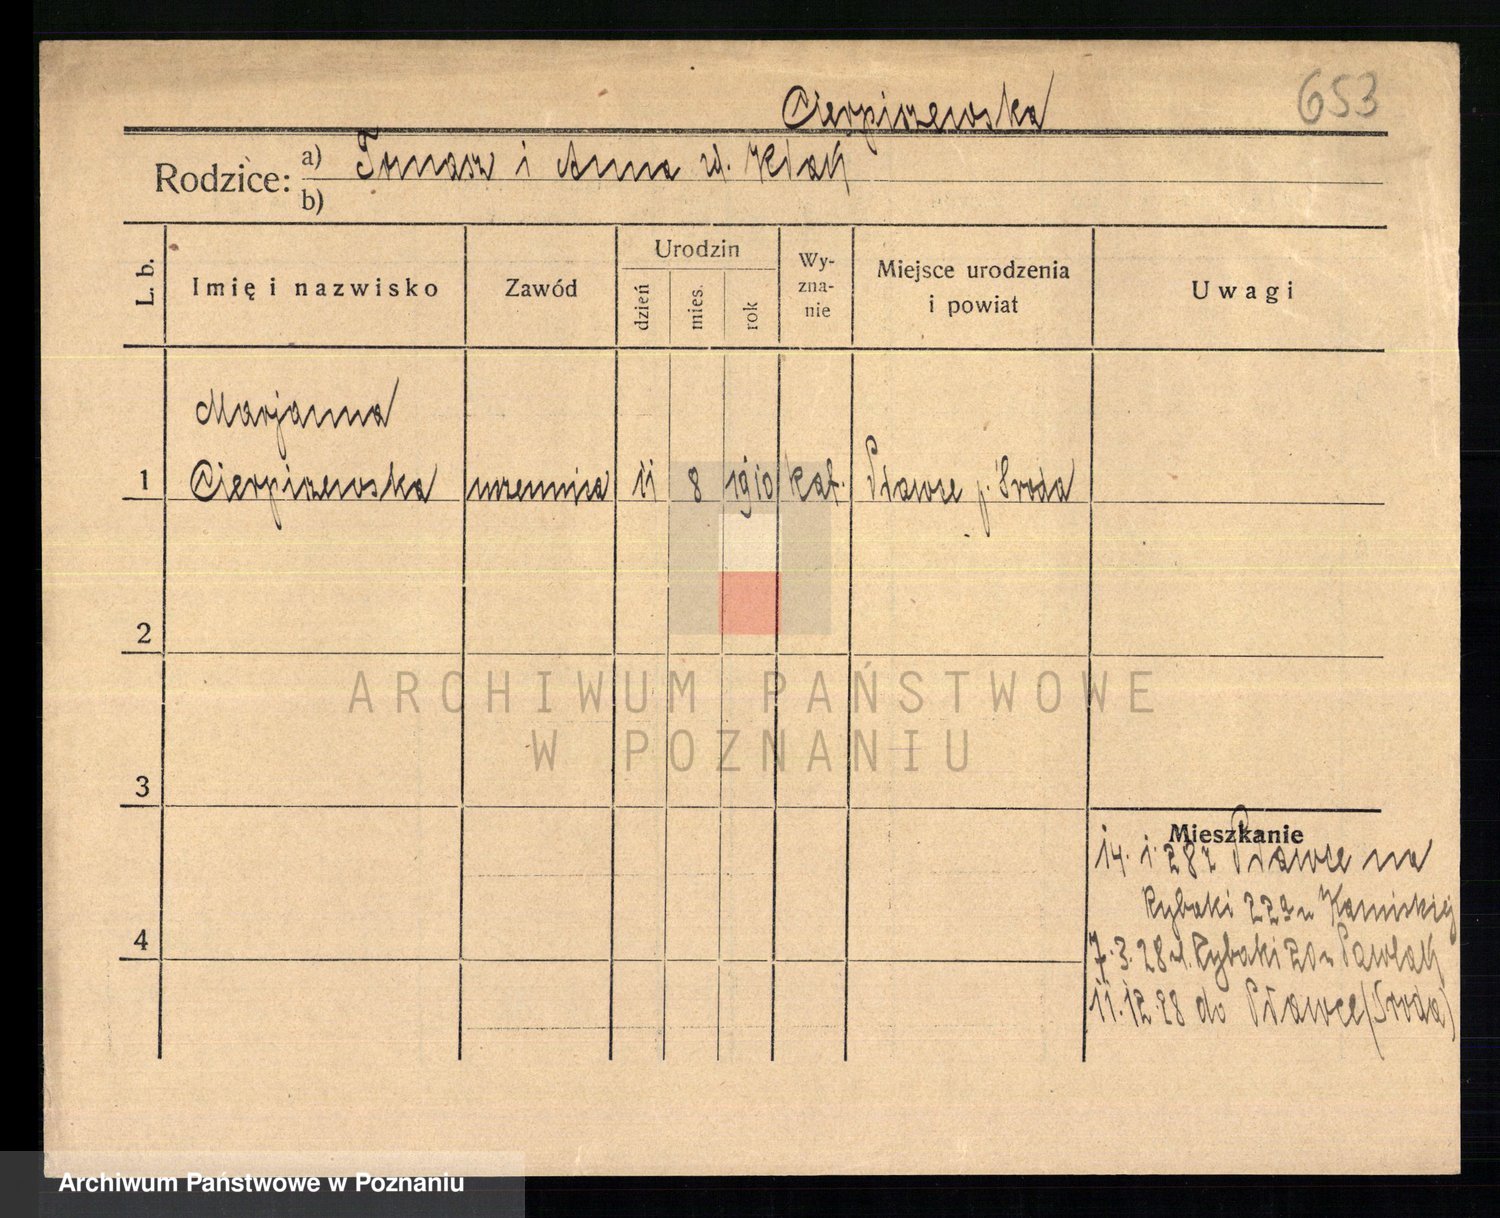 653
Cierpiszewska
Rodzice: a) Tomasz i Anna
b)
L. b.
Imię i nazwisko
Zawód
Urodzin
dzień
mies.
rok
Wy-
zna-
nie
Miejsce urodzenia
i powiat
Uwagi
Marjanna
1 Cierpiszewska uczennica 11 8 1910 kat. Pławce p. Środa
2
3
4
Mieszkanie
14. 1. 28 z Pławce na
Rybaki
7. 3. 28 Rybaki 20 Pawlak
11. 12. 28 do Pławce (Środa)
ARCHIWUM PAŃSTWOWE
W POZNANIU
Archiwum Państwowe w Poznaniu